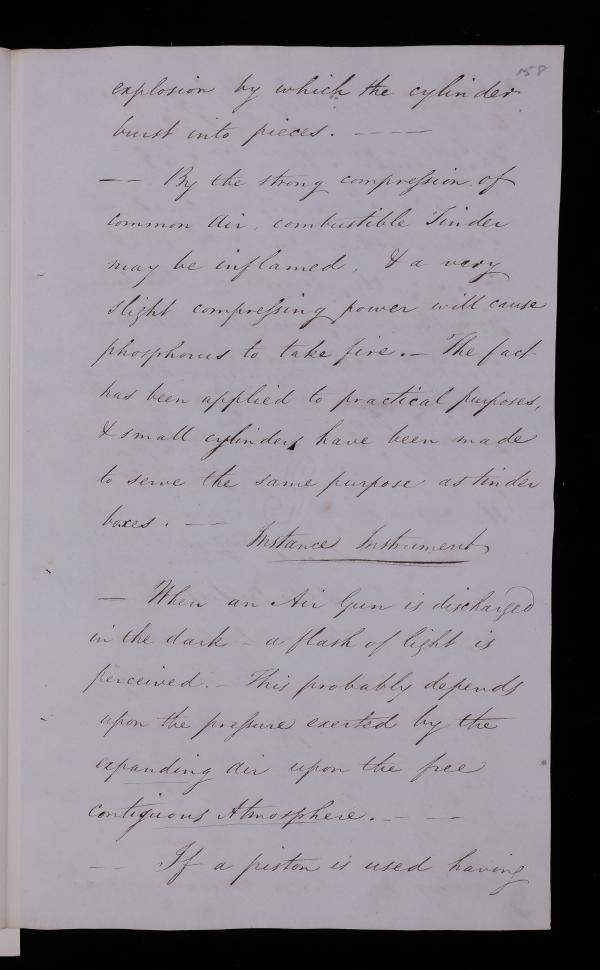 158
explosion by which the cylinder
burst into pieces. - - - -
- - By the strong compression of
common Air, combustible Tinder
may be inflamed, & a very
slight compressing power will cause
phosphorus to take fire. - The fact
has been applied to practical purposes,
& small cylinders have been made
to serve the same purpose as tinder
boxes. - -
Instance Instrument
- When an Air Gun is discharged
in the dark - a flash of light is
perceived. - This probably depends
upon the pressure exerted by the
expanding air upon the free
contiguous Atmosphere. - - -
- - If a piston is used having